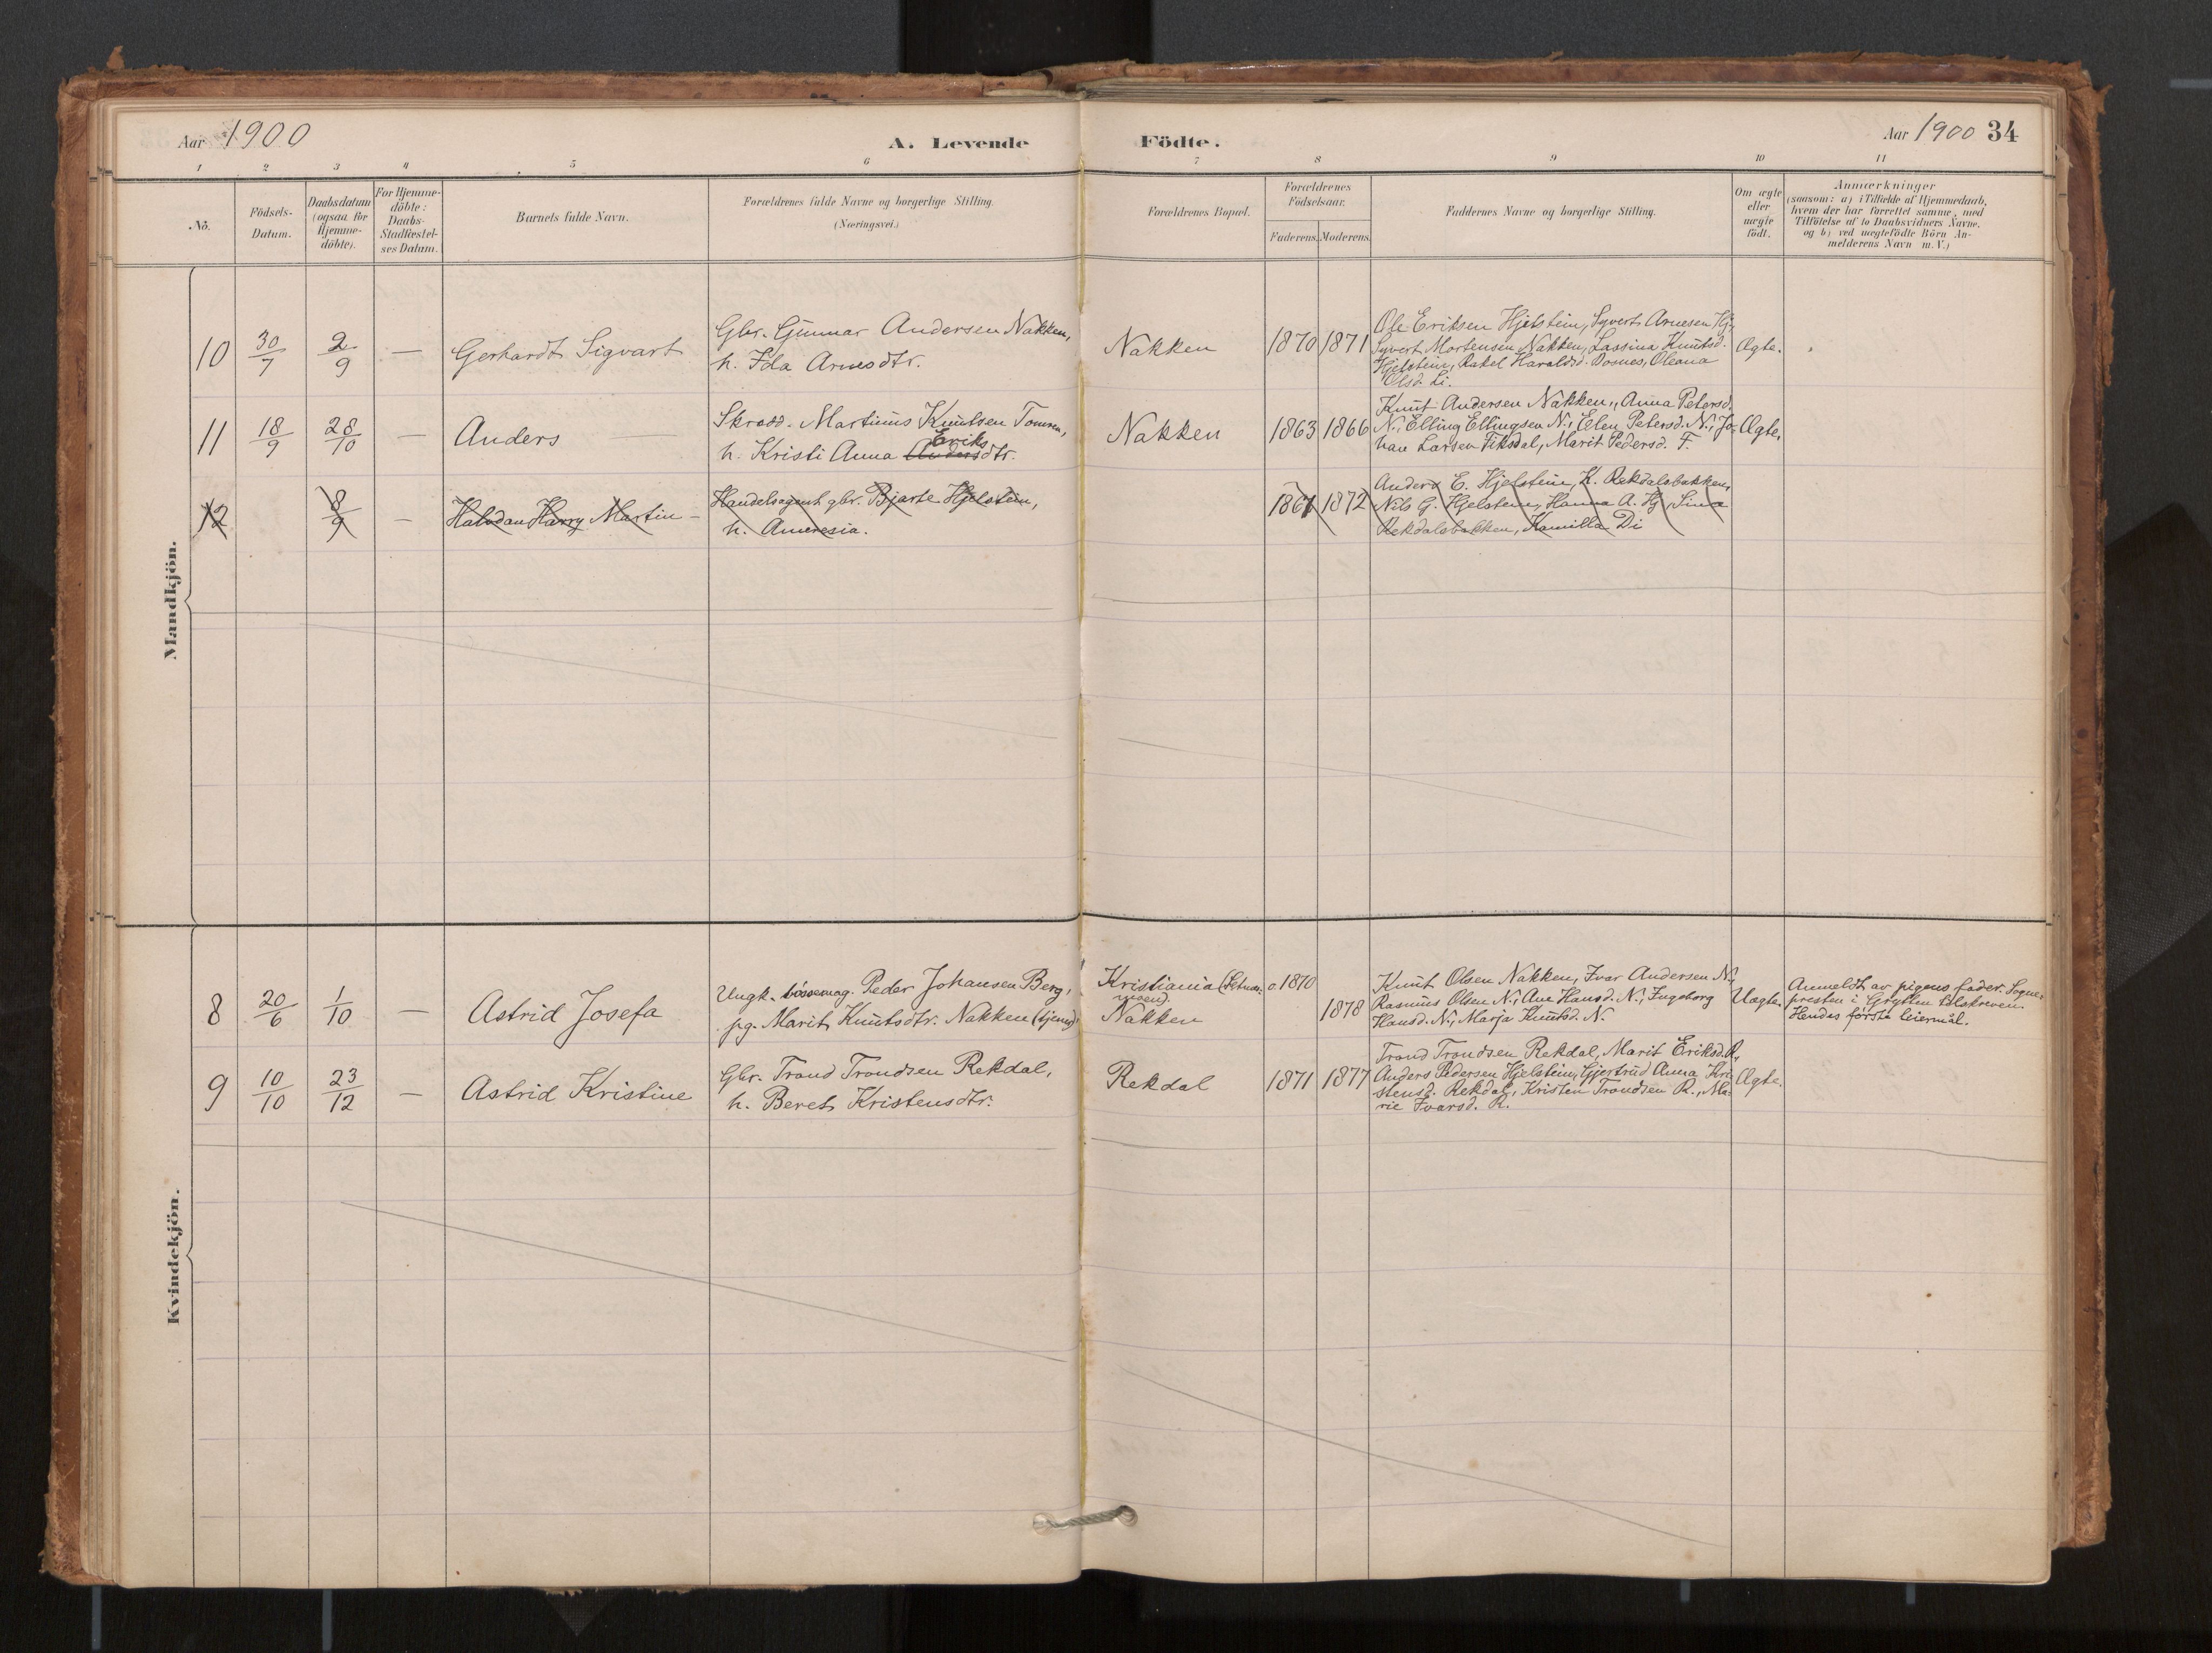 Aar 1900
A. Levende
Födte.
Aar 1900 34
1 2 3 4 5 6 7 8 9 10 11
No.
Födsels-
Datum.
Daabsdatum
(ogsaa for
Hjemme-
döbte).
For Hjemme-
döbte:
Daabs-
Stadfæstel-
ses Datum.
Barnets fulde Navn.
Forældrenes fulde Navne og borgerlige Stilling.
(Næringsvei.)
Forældrenes Bopæl.
Forældrenes
Födselsaar.
Faderens. Moderens.
Faddernes Navne og borgerlige Stilling.
Om ægte
eller
uægte
födt.
Anmærkninger
(saasom: a) i Tilfælde af Hjemmedaab,
hvem der har forrettet samme, med
Tilföielse af to Daabsvidners Navne.
og b) ved uægtefödte Börn An-
melderens Navn m. V.)
Mandkjön.
10
30/7
2/9
—
Gerhardt Sigvart
Gbr. Gunnar Andersen Nakken,
h. Ida Arnesdtr.
Nakken
1870 1871
Ole Eriksen Hjelstein, Syvert Arnesen Hj.,
Syvert Mortensen Nakken, Lassina Knutsd.
Hjelstein, Rakel Haraldsd. Dosnes, Oleana
Olsd. Li.
Ægte.
11
18/9
28/10
—
Anders
Skrædd. Martinus Knutsen Tomren,
Eriks
h. Kristi Anna Andersdtr.
Nakken
1863 1866
Knut Andersen Nakken, Anna Petersd.
N., Elling Ellingsen N., Elen Petersd. N., Jo-
han Larsen Fiksdal, Marit Pedersd. F.
Ægte.
12
8/9
—
Halvdan Harry Martin —
Handelsagent gbr. Bjarte Hjelstein,
h. Ameresia.
1861 1872
Anders E. Hjelstein, K. Rekdalsbakken,
Nils G. Hjelstein, Hanna A. Hj, Sina
Rekdalsbakken, Kamilla Di
Kvindekjön.
8
20/6
1/10
—
Astrid Josefa
Ungk. bössemag. Peder Johansen Berg,
pg. Marit Knutsdtr. Nakken (tjened)
Kristiania
Nakken
c. 1870
1878
Knut Olsen Nakken, Ivar Andersen N.,
Rasmus Olsen N., Ane Hansd. N., Ingeborg
Hansd. N., Marja Knutsd. N.
Uægte.
Anmeldt av pigens fader. Sogne-
presten i Grytten tilskreven.
Hendes første leiermål.
9
10/10
23/12
—
Astrid Kristine
Gbr. Trond Trondsen Rekdal,
h. Beret Kristensdtr.
Rekdal
1871 1877
Trond Trondsen Rekdal, Marit Eriksd. R.,
Anders Pedersen Hjelstein, Gjertrud Anna Kri-
stensd. Rekdal, Kristen Trondsen R., Ma-
rie Ivarsd. R.
Ægte.